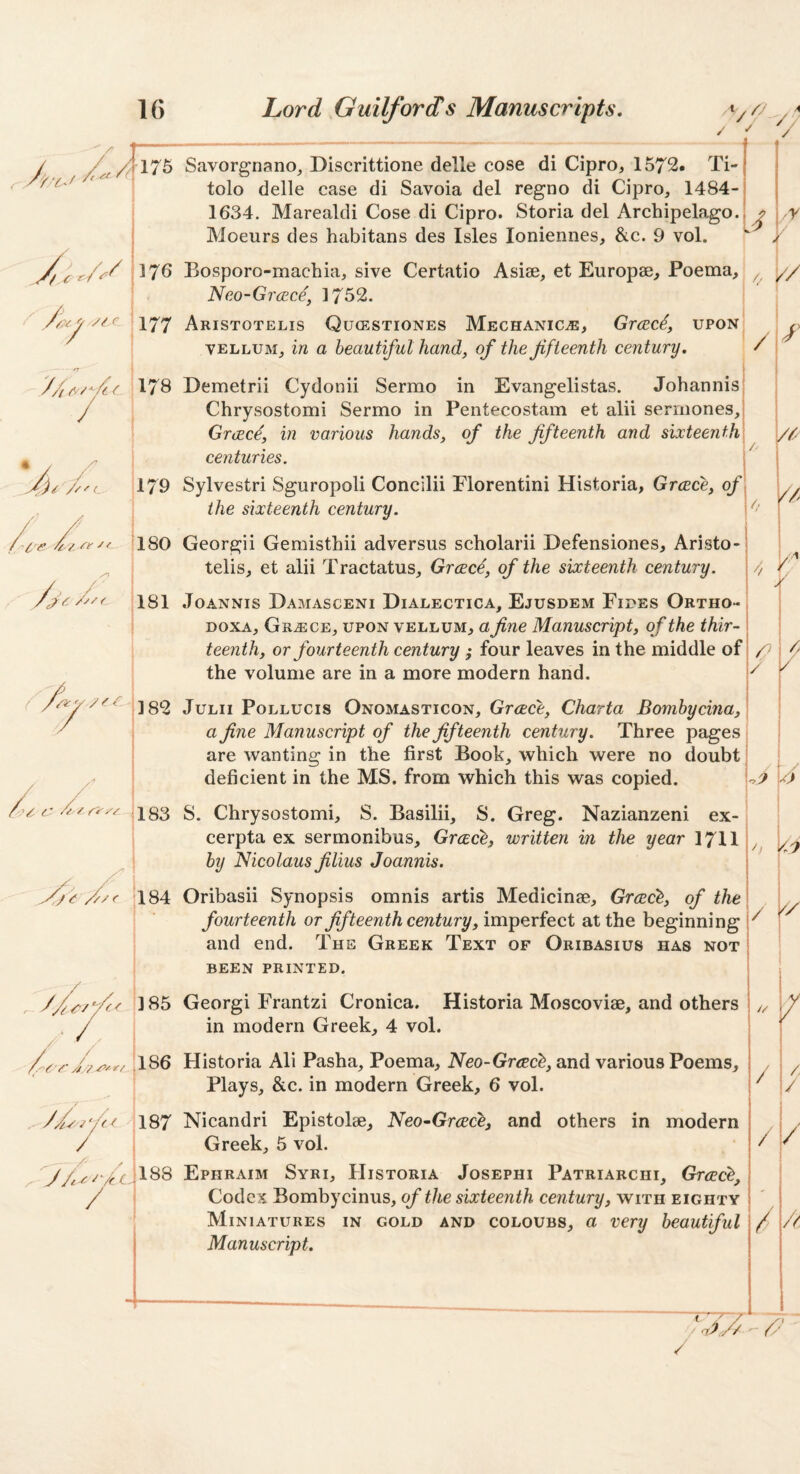 16 Lord Guilford's Manuscripts.
175 Savorgnano, Discrittione delle cose di Cipro, 1572. Ti-
tolo delle case di Savoia del regno di Cipro, 1484-
1634. Marealdi Cose di Cipro. Storia del Archipelago.
Moeurs des habitans des Isles Ioniennes, &c. 9 vol.
176 Bosporo-machia, sive Certatio Asiæ, et Europæ, Poema,
Neo-Græcé, 1752.
177 Aristotelis Quœstiones Mechanicæ, Græcé, upon
vellum, in a beautiful hand, of the fifteenth century.
178 Demetrii Cydonii Sermo in Evangelistas. Johannis
Chrysostomi Sermo in Pentecostam et alii sermones,
Græcé, in various hands, of the fifteenth and sixteenth
centuries.
179 Sylvestri Sguropoli Concilii Florentini Historia, Græcè, of
the sixteenth century.
180 Georgii Gemisthii adversus scholarii Defensiones, Aristo-
telis, et alii Tractatus, Græcé, of the sixteenth century.
181 Joannis Damasceni Dialectica, Ejusdem Fides Ortho-
doxa, Græce, upon vellum, a fine Manuscript, of the thir-
teenth, or fourteenth century ; four leaves in the middle of
the volume are in a more modern hand.
182 Julii Pollucis Onomasticon, Græcè, Charta Bombycina,
a fine Manuscript of the fifteenth century. Three pages
are wanting in the first Book, which were no doubt
deficient in the MS. from which this was copied.
183 S. Chrysostomi, S. Basilii, S. Greg. Nazianzeni ex-
cerpta ex sermonibus, Græcè, written in the year 1711
by Nicolaus filius Joannis.
184 Oribasii Synopsis omnis artis Medicinæ, Græcè, of the
fourteenth or fifteenth century, imperfect at the beginning
and end. The Greek Text of Oribasius has not
been printed.
185 Georgi Frantzi Cronica. Historia Moscoviæ, and others
in modern Greek, 4 vol.
186 Historia Ali Pasha, Poema, Neo-Græcè, and various Poems,
Plays, &c. in modern Greek, 6 vol.
187 Nicandri Epistolæ, Neo-Græcè, and others in modern
Greek, 5 vol.
188 Ephraim Syri, Historia Josephi Patriarchi, Græcè,
Codex Bombycinus, of the sixteenth century, with eighty
Miniatures in gold and colours, a very beautiful
Manuscript.